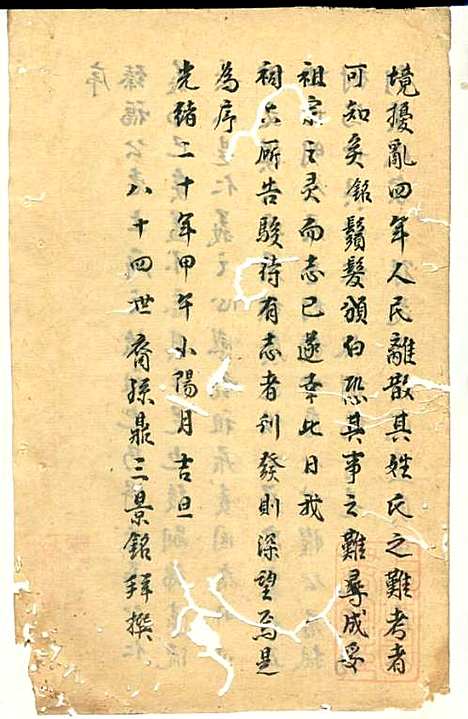 境擾亂四年人民離散其姓氏之難考者
可知矣銘鬚髮頒白恐其事之難尋成受
祖宗之灵而志已遂幸此日我
祠上所告駿待有志者刊發則深望焉是
為序
光緒二十年甲午小陽月吉旦
八十四世裔孫鼎三景銘拜撰